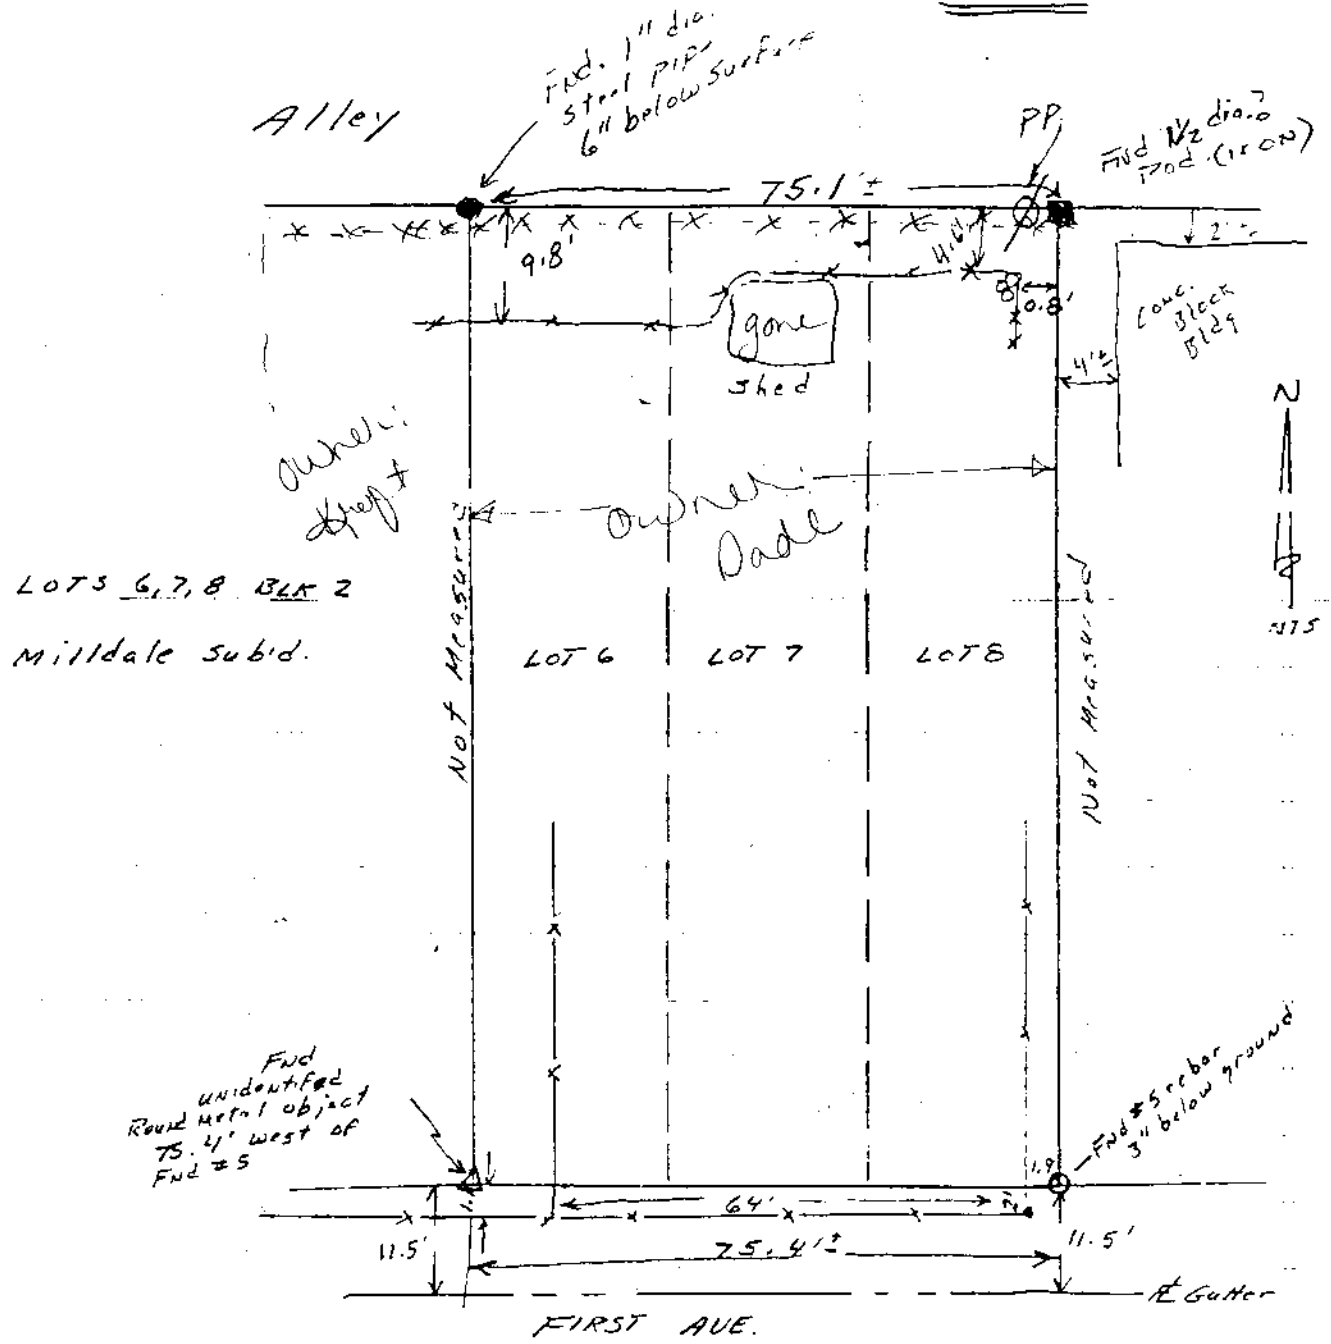 Alley
Fnd. 1" dia.
steel pipe
6" below surface
PP
Fnd 1/2 dia.?
rod (iron)
75.1'±
9.8'
0.8'
2'±
gone
shed
Conc.
Block
Bldg
4'±
N
NTS
owner:
owner:
Dade
LOTS 6, 7, 8 BLK 2
Milldale Sub'd.
Not Measured
LOT 6
LOT 7
LOT 8
Not Measured
Fnd
unidentifed
Round metal object
75.4' west of
Fnd #5
Fnd #5 rebar
3" below ground
1.9
64'
11.5'
75.4'±
11.5'
Gutter
FIRST AVE.